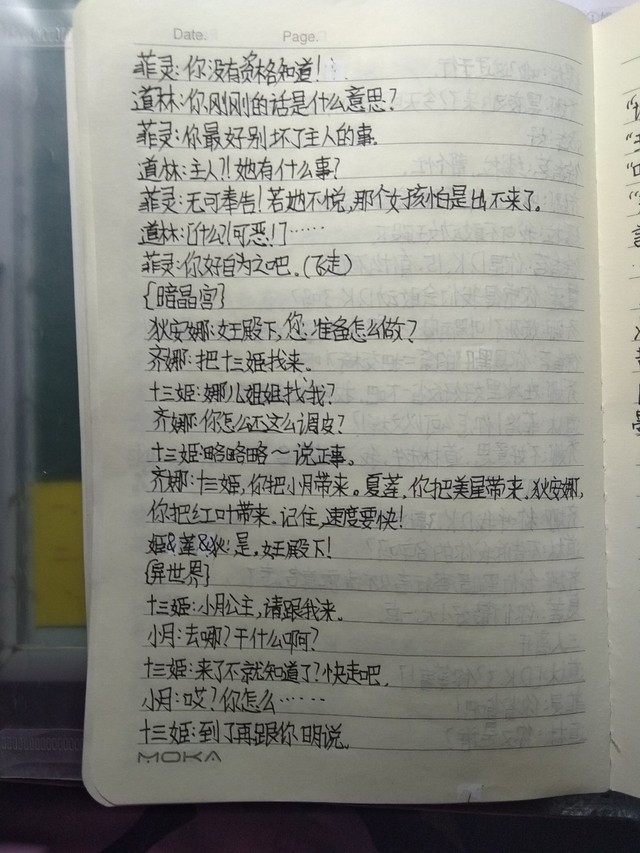 Date. Page.
菲灵:你没有资格知道!
道林:你刚刚的话是什么意思?
菲灵:你最好别坏了主人的事.
道林:主人?!她有什么事?
菲灵:无可奉告!若她不悦,那个女孩怕是出不来了。
道林:[什么?!可恶!]……
菲灵:你好自为之吧.(飞走)
{暗晶宫}
狄安娜:女王殿下,您:准备怎么做?
齐娜:把十三姬找来。
十三姬:娜儿姐姐找我?
齐娜:你怎么还这么调皮?
十三姬:略略略~说正事。
齐娜:十三姬,你把小月带来。夏莲.你把美星带来.狄安娜,
你把红叶带来.记住,速度要快!
姬&莲&狄:是,女王殿下!
{异世界}
十三姬:小月公主,请跟我来。
小月:去哪?干什么啊?
十三姬:来了不就知道了?快走吧.
小月:哎?你怎么……
十三姬:到了再跟你明说.
MOKA